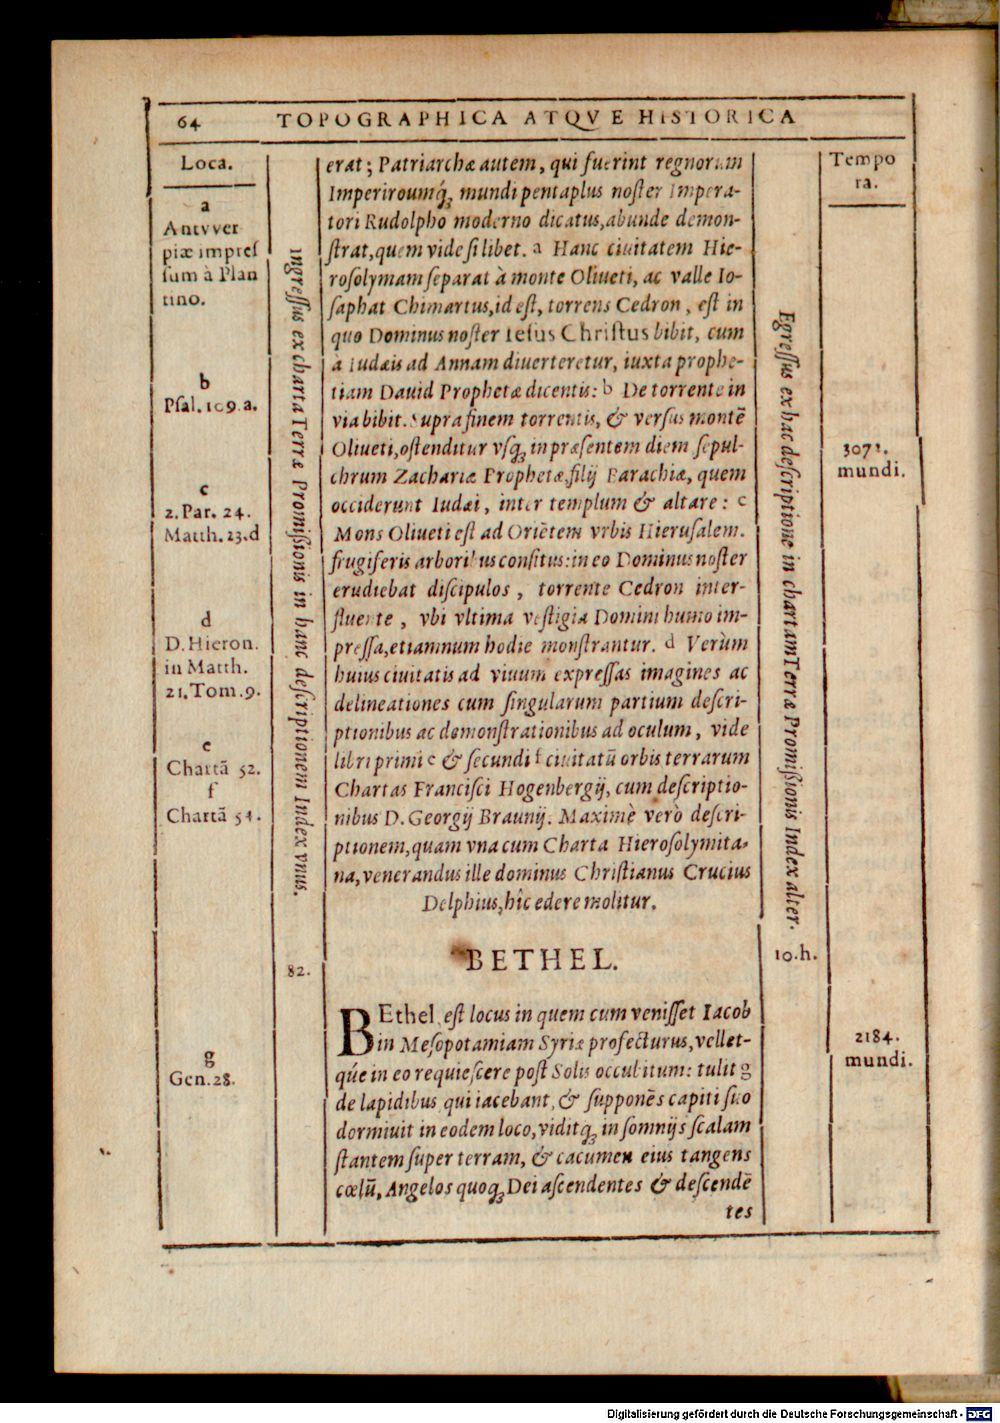 64 TOPOGRAPHICA ATQVE HISTORICA
Loca.
a
Antvver
piæ impreſ
ſum à Plan
tino.
b
Pſal. 109. a.
c
2. Par. 24.
Matth. 23. d
d
D. Hieron.
in Matth.
21. Tom. 9.
e
Chartā 52.
f
Chartā 54.
g
Gen. 28.
Ingreſſus ex charta Terræ Promiſſionis in hanc deſcriptionem Index vnus.
82.
erat; Patriarchæ autem, qui fuerint regnorum
Imperiroumq́ꝫ mundi pentaplus noſter Impera-
tori Rudolpho moderno dicatus, abunde demon-
ſtrat, quem vide ſi libet. a Hanc ciuitatem Hie-
roſolymam ſeparat à monte Oliueti, ac valle Io-
ſaphat Chimartus, id eſt, torrens Cedron, eſt in
quo Dominus noſter Ieſus Chriſtus bibit, cum
à Iudæis ad Annam diuerteretur, iuxta prophe-
tiam Dauid Prophetæ dicentis: b De torrente in
via bibit. Supra finem torrentis, & verſus montē
Oliueti, oſtenditur vſqꝫ in præſentem diem ſepul-
chrum Zachariæ Prophetæ, filij Barachiæ, quem
occiderunt Iudæi, inter templum & altare: c
Mons Oliueti eſt ad Oriētem vrbis Hieruſalem.
frugiferis arboribus conſitus: in eo Dominus noſter
erudiebat diſcipulos, torrente Cedron inter-
fluente, vbi vltima veſtigia Domini humo im-
preſſa, etiamnum hodie monſtrantur. d Verùm
huius ciuitatis ad viuum expreſſas imagines ac
delineationes cum ſingularum partium deſcri-
ptionibus ac demonſtrationibus ad oculum, vide
libri primi e & ſecundi f ciuitatū orbis terrarum
Chartas Franciſci Hogenbergij, cum deſcriptio-
nibus D. Georgij Braunij. Maximè verò deſcri-
ptionem, quam vna cum Charta Hieroſolymita-
na, venerandus ille dominus Chriſtianus Crucius
Delphius, hîc edere molitur.
BETHEL.
BEthel eſt locus in quem cum veniſſet Iacob
in Meſopotamiam Syriæ profecturus, vellet-
qúe in eo requieſcere poſt Solis occubitum: tulit g
de lapidibus qui iacebant, & ſupponēs capiti ſuo
dormiuit in eodem loco, viditqꝫ in ſomnijs ſcalam
ſtantem ſuper terram, & cacumen eius tangens
cœlū, Angelos quoqꝫ Dei aſcendentes & deſcendē
tes
Egreſſus ex hac deſcriptione in chartam Terræ Promiſſionis Index alter.
10. h.
Tempo
ra.
3071.
mundi.
2184.
mundi.
Digitalisierung gefördert durch die Deutsche Forschungsgemeinschaft - DFG